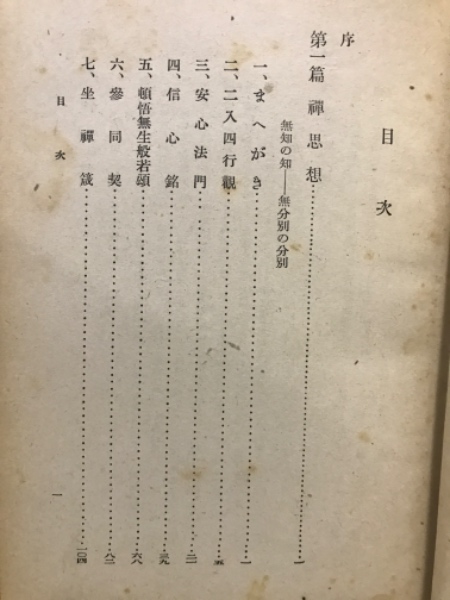 目次
序
第一篇 禪思想……一
無知の知——無分別の分別
一、まへがき……一
二、二入四行觀……五
三、安心法門……二一
四、信心銘……三九
五、頓悟無生般若頌……六八
六、參同契……八二
七、坐禪箴……一〇四
目次
一